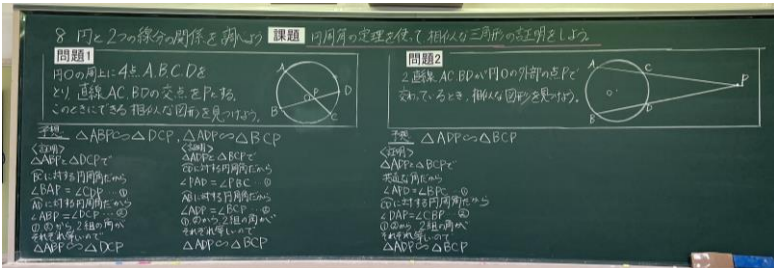 8 円と2つの線分の関係を調べよう 課題 円周角の定理を使って相似な三角形の証明をしよう。
問題1
円Oの周上に4点A,B,C,Dを
とり 直線AC,BDの交点をPとする。
このときにできる相似な図形を見つけよう。
A
B
C
D
P
O
予想 △ABP∽△DCP, △ADP∽△BCP
〈証明〉
△ABPと△DCPで
BCに対する円周角だから
∠BAP=∠CDP…①
ADに対する円周角だから
∠ABP=∠DCP…②
①②から2組の角が
それぞれ等しいので
△ABP∽△DCP
〈証明〉
△ADPと△BCPで
CDに対する円周角だから
∠PAD=∠PBC…①
ABに対する円周角だから
∠ADP=∠BCP…②
①②から2組の角が
それぞれ等しいので
△ADP∽△BCP
問題2
2直線AC,BDが円Oの外部の点Pで
交わっているとき、相似な図形を見つけよう。
A
C
P
O
D
B
予想 △ADP∽△BCP
〈証明〉
△ADPと△BCPで
共通な角だから
∠APD=∠BPC…①
CDに対する円周角だから
∠DAP=∠CBP…②
①②から2組の角が
それぞれ等しいので
△ADP∽△BCP